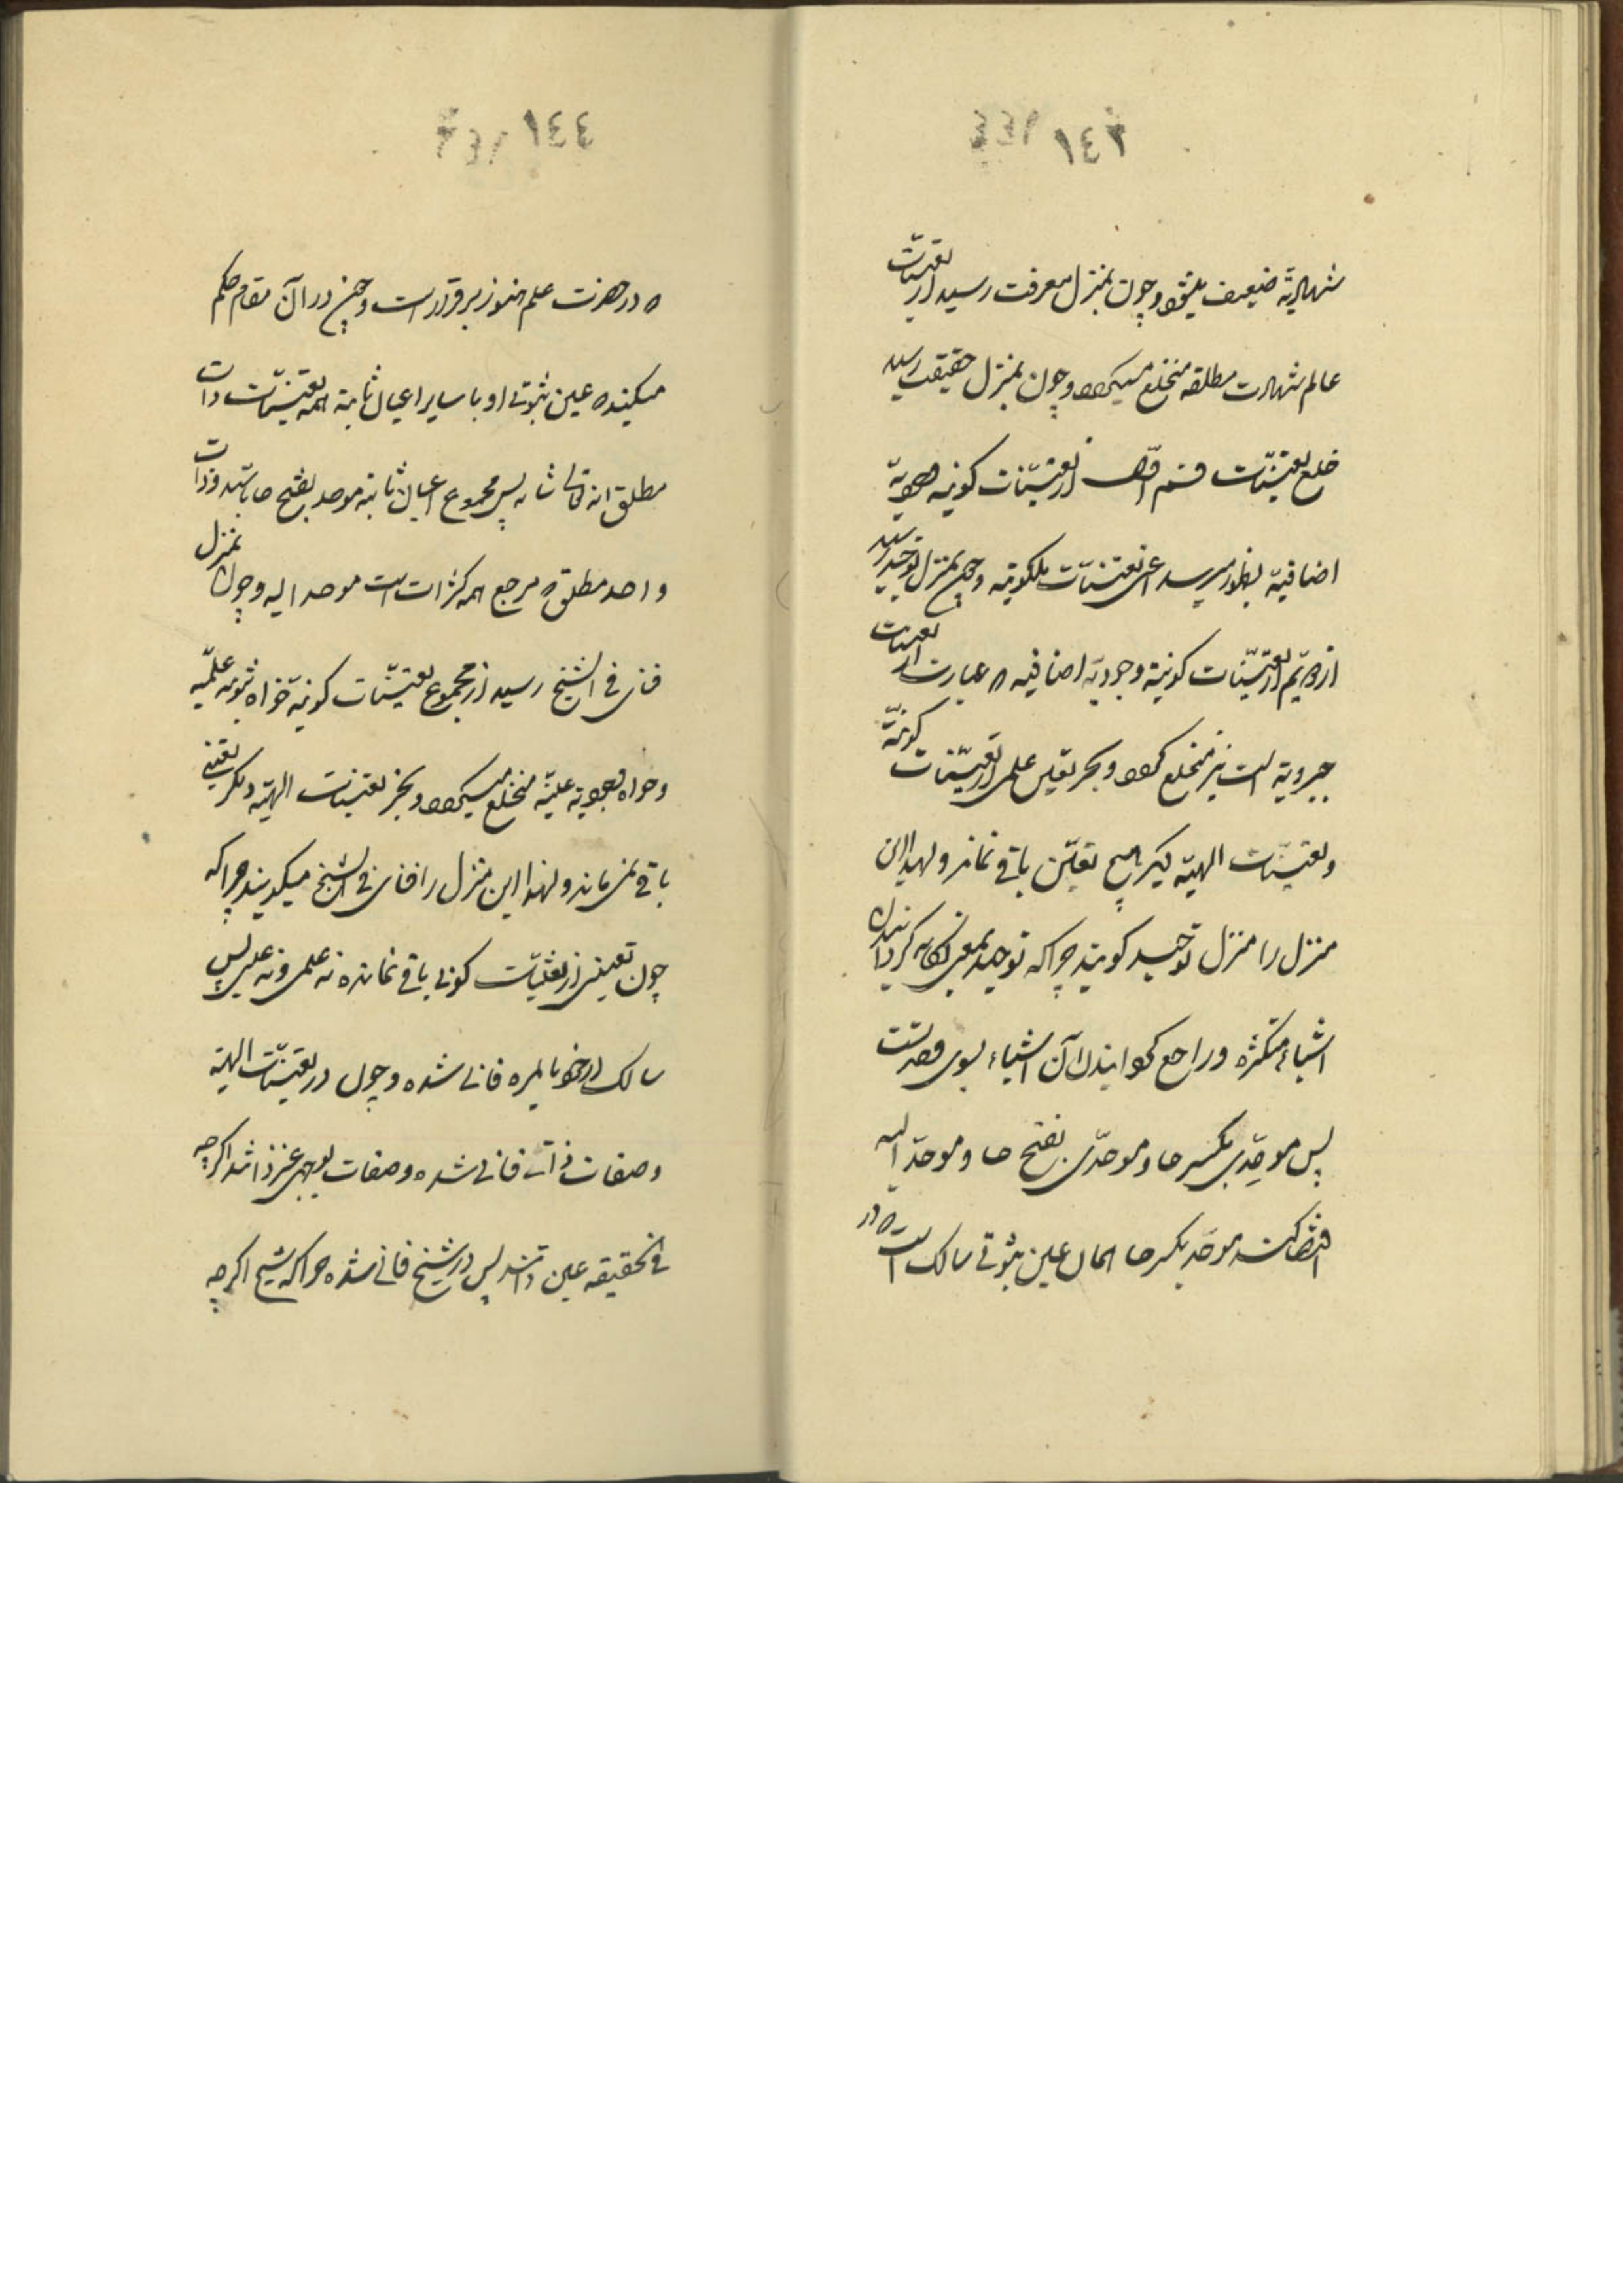 ١٤٣
شهادیّه ضعیف میشود و چون بمنزل معرفت رسید از تعیّنات
عالم شهادت مطلقه منخلع میگردد و چون بمنزل حقیقت رسید
خلع تعیّنات قسم اوّل از تعیّنات کونیه وجودیّه
اضافیّة بظهور میرسد اعنی تعیّنات ملکوتیه و چون بمنزل توحید رسید
از قسم از تعیّنات کونیّة وجودیّه اضافیه که عبارت از تعینات
جبروتیة است نیز منخلع گردد و بجز تعین علمی از تعیّنات کونیّة
و تعیّنات الهیّه دیگر هیچ تعیّن باقی نماند و لهذا این
منزل را منزل توحید گویند چرا که توحید بمعنی یگانه گردانیدن
اشیاء متکثره و راجع گردانیدن آن اشیاء بسوی وحدتست
پس موحِّدی بکسر حا و موحَّدی بفتح حا و موحّد الیه
اقتضا کند موحّد بکسر حا الحال عین ثبوتی سالک است که در
١٤٤
که در حضرت علم هنوز برقرار است و چنین در آن مقام حکم
میکند که عین ثبوتی او با سایر اعیان ثابته همه تعیّنات ذات
مطلق اند تعالی شانه پس مجموع اعیان ثابته موحد بفتح حا باشد و ذات
واحد مطلق که مرجع همه کثرات است موحد الیه و چون بمنزل
فنای فی الشیخ رسید از مجموع تعیّنات کونیّه خواه ثبوتیه علمیّه
و خواه وجودیه عینیّه منخلع میگردد و بجز تعینات الهیّه دیگر تعینی
باقی نمی ماند و لهذا این منزل را فنای فی الشیخ میگویند چرا که
چون تعینی از تعیّنات کونی باقی نمانده نه علمی و نه عینی پس
سالک از خود بالمره فانی شده و چون در تعیّنات الهیّه
و صفات ذات فانی شده و صفات بوجهی غیر ذاتند اگرچه
فی الحقیقه عین ذاتند پس در شیخ فانی شده چرا که شیخ اگرچه